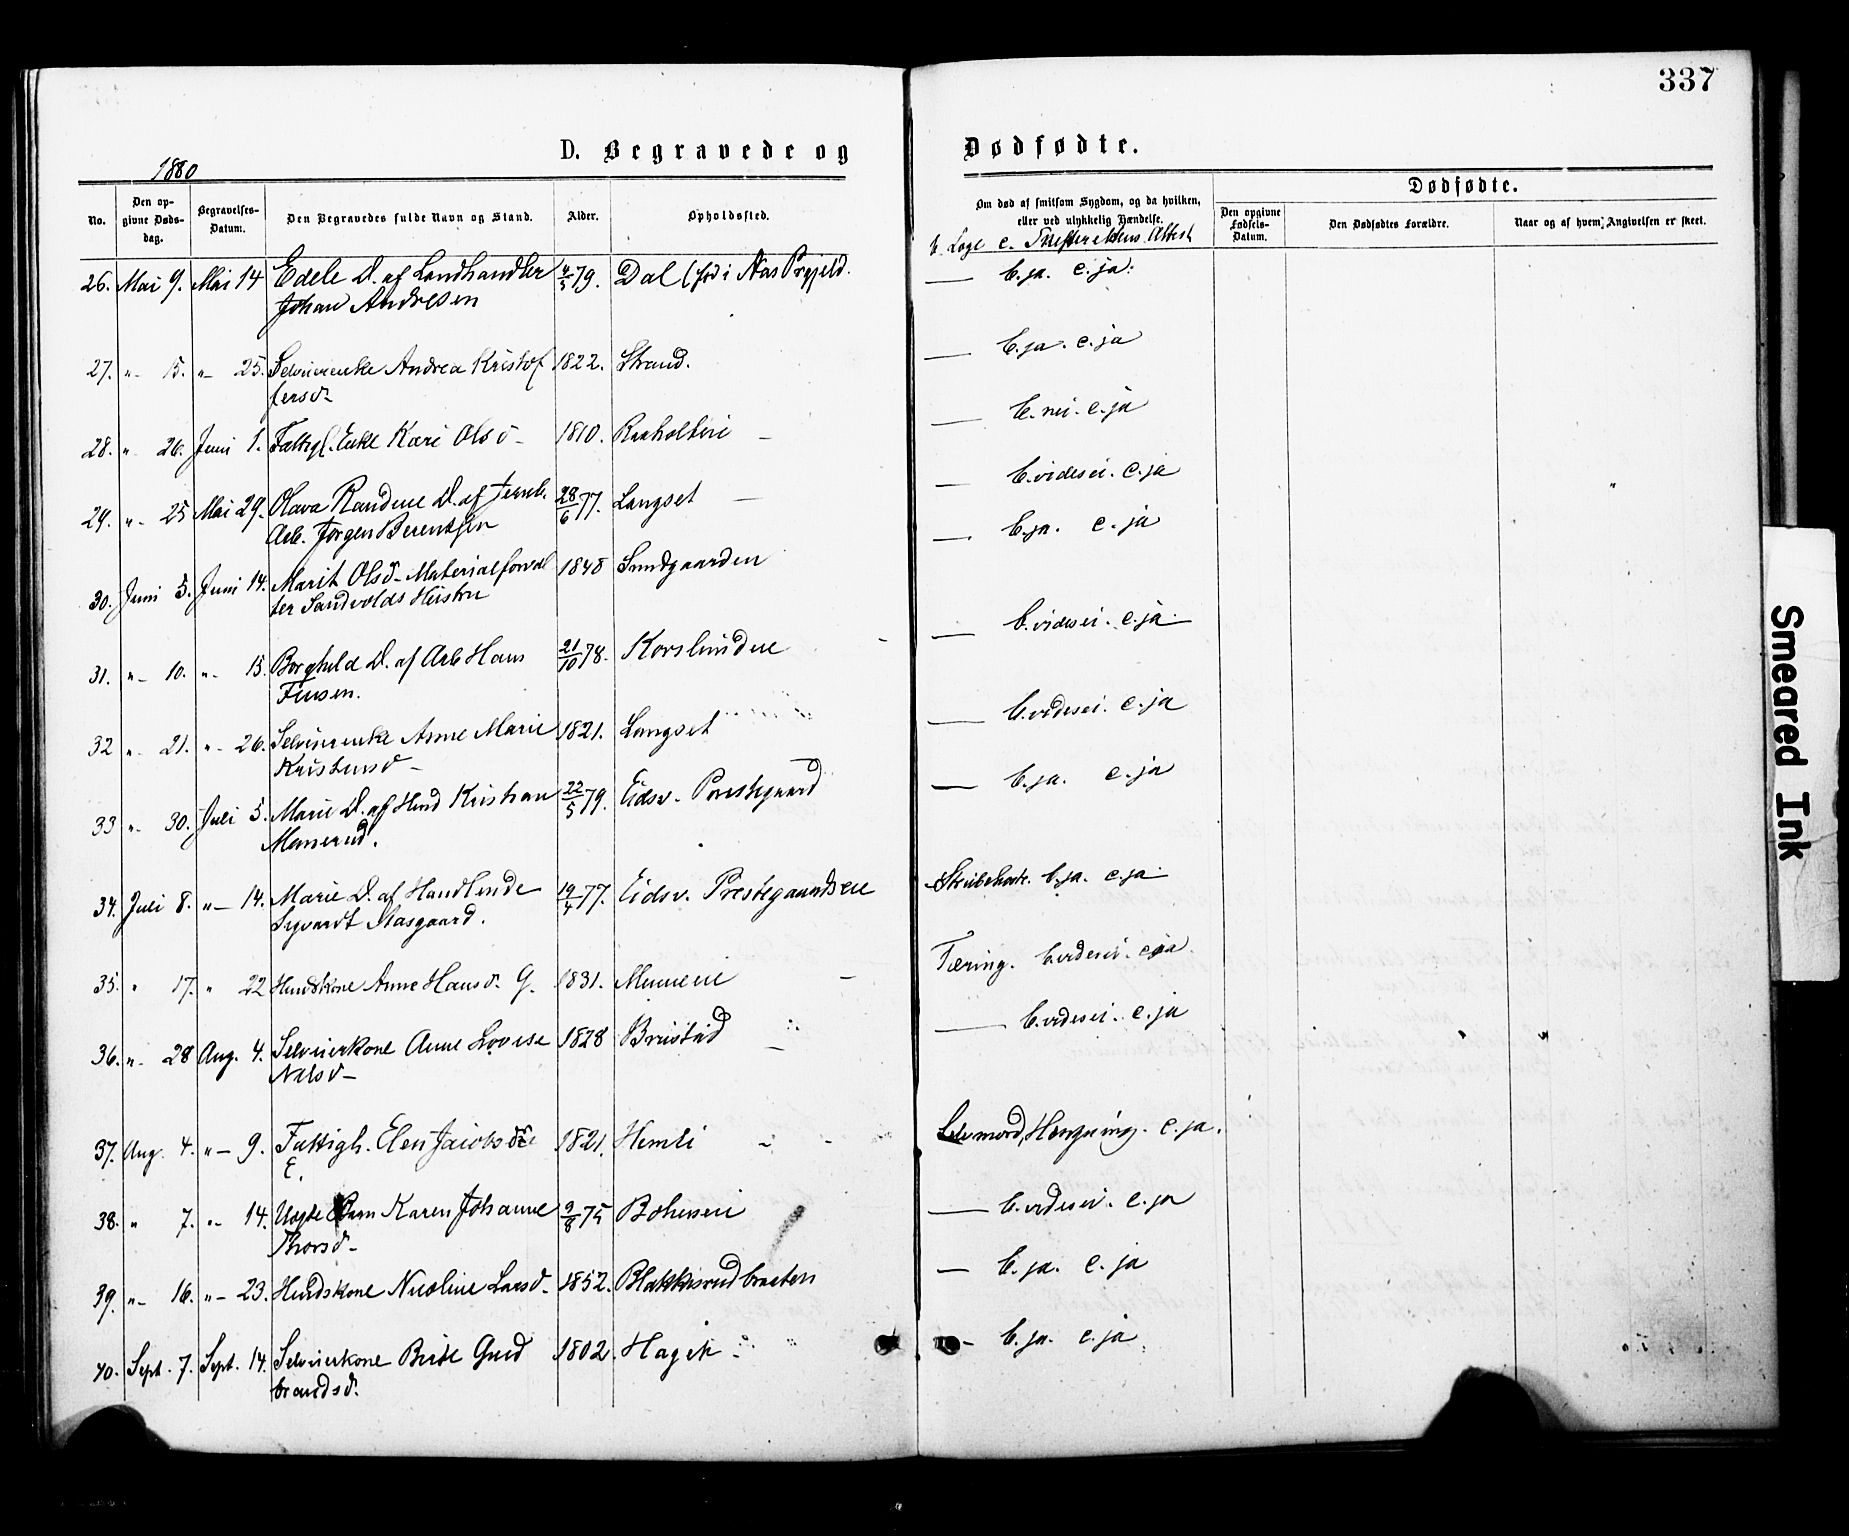 337
D. Begravede og Dødfødte.
1880
No.
Den opgivne Døds-dag.
Begravelses-Datum.
Den Begravedes fulde Navn og Stand.
Alder.
Opholdssted.
Om død af smitsom Sygdom, og da hvilken, eller ved ulykkelig Hændelse.
b. Læge c. Skifterettens Attest
Dødfødte.
Den opgivne Fødsels-Datum.
Den Dødfødtes Forældre.
Naar og af hvem Angivelsen er skeet.
26. Mai 9. Mai 14 Edele D. af Landhandler 79. Dal (fød i Næs Prgjeld. — b. ja. c. ja.
Johan Andresen
27. " 15. " 25. Selveierenke Andrea Kristof 1822. Strand. — b. ja. c. ja
fersd.
28. " 26. Juni 1. Fattigl. Enke Kari Olsd. 1810. Raaholteie — b. nei. c. ja
29. " 25 Mai 29. Olava Randine D. af Jernb. 28/6 77. Langset — b. videsei. c. ja
Arb. Jørgen Berentsen
30. Juni 5. Juni 14. Marit Olsd. Materialforval 1848 Sundgaarden — b. ja. c. ja
ter Sandvolds Hustru
31. " 10. " 15. Borghild D. af Arb Hans 21/10 78. Korslundene — b. videsei. c. ja.
Finsen.
32 " 21. " 26. Selveierenke Anne Marie 1821. Langset — b. videsei. c. ja
Kristensd.
33 " 30. Juli 5. Marie D. af Husd Kristian 22/5 79. Eidsv. Prestegaard — b. ja. c. ja
Manerud.
34. Juli 8. " 14. Marie D. af Handlende 19/4 77. Eidsv. Prestegaardseie Strubehoste. b. ja. c. ja.
Sigvardt Aasgaard.
35. " 17. " 22 Husdskone Anne Hansd. G. 1831. Minneeie Tæring. b. videsei. c. ja
36. " 28 Aug. 4. Selveierkone Anne Lovise 1828 Brustad — b. videsei. c. ja
Nilsd.
37. Aug. 4. " 9. Fattigl. Eleni Jacobsd. 1821. Hemli Selvmord, Hængning. c. ja.
E.
38. " 7. " 14. Uægte Barn Karen Johanne 9/8 75 Bøhnseie — b. videsei. c. ja
Thorsd.
39. " 16. " 23. Husdskone Nicoline Larsd. 1852. Blakkisrudbraaten — b. ja. c. ja
40. Sept. 7. Sept. 14. Selveierkone Birte Gud 1802. — b. ja. c. ja
brandsd.
Smeared Ink